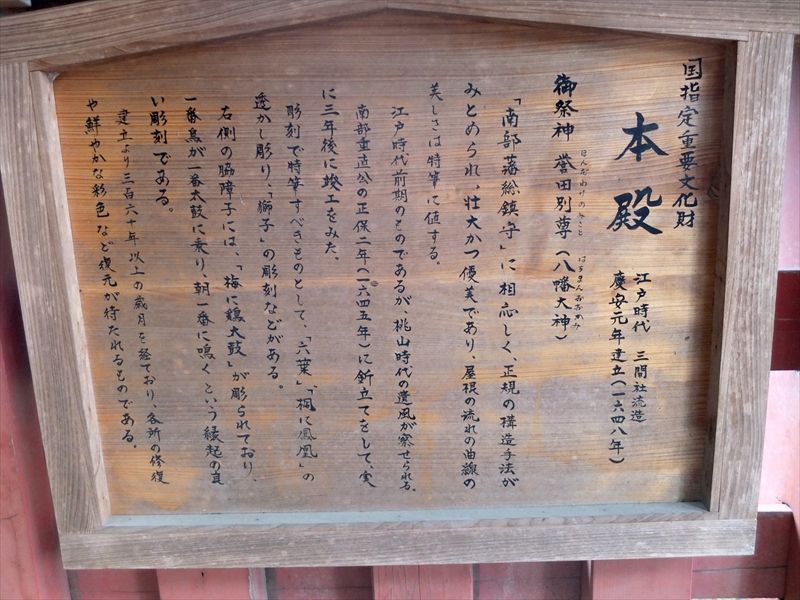 国指定重要文化財
本殿
江戸時代 三間社流造
慶安元年建立(一六四八年)
御祭神 誉田別尊(八幡大神)
ほんだわけのみこと はちまんおおかみ
「南部藩総鎮守」に相応しく、正規の構造手法が
みとめられ、壮大かつ優美であり、屋根の流れの曲線の
美しさは特筆に値する。
江戸時代前期のものであるが、桃山時代の遺風が察せられる。
南部重直公の正保二年(一六四五年)に釿立てをして、実
に三年後に竣工をみた。
彫刻で特筆すべきものとして、「六葉」「桐に鳳凰」の
透かし彫り、「獅子」の彫刻などがある。
右側の脇障子には、「梅に鶏太鼓」が彫られており、
一番鳥が一番太鼓に乗り、朝一番に鳴くという縁起の良
い彫刻である。
建立より三百六十年以上の歳月を経ており、各所の修復
や鮮やかな彩色など復元が待たれるものである。